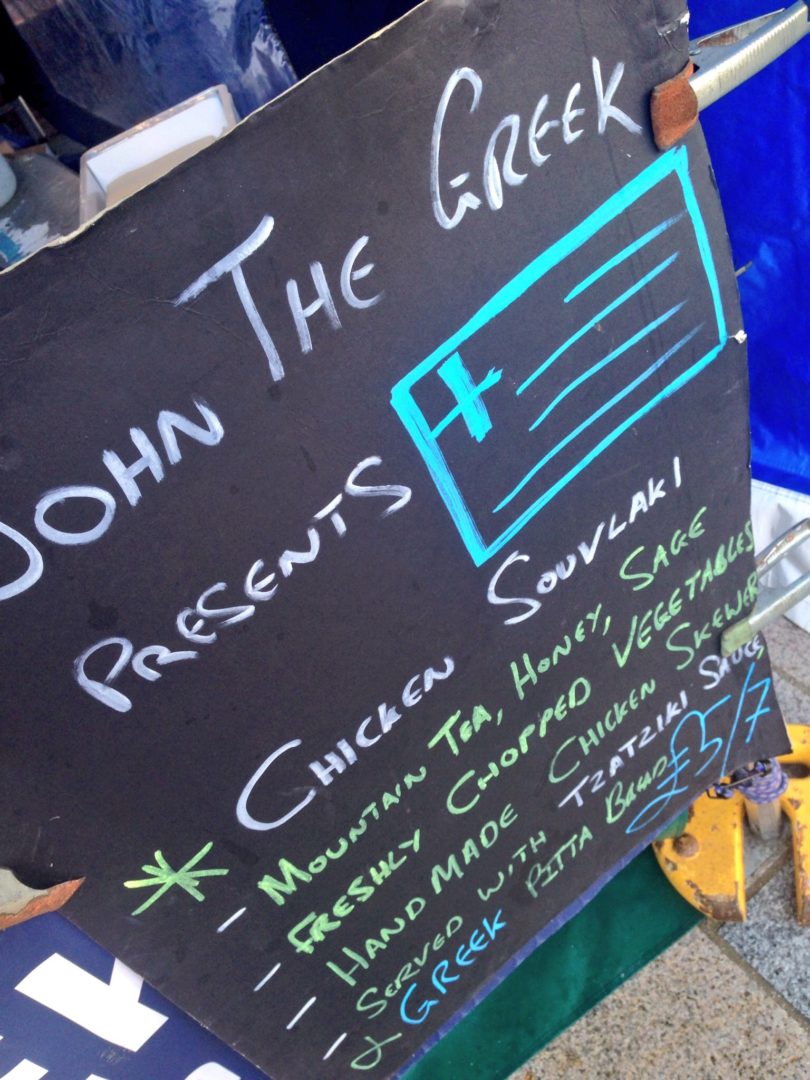 JOHN THE GREEK
PRESENTS
CHICKEN SOUVLAKI
- MOUNTAIN TEA, HONEY, SAGE
- FRESHLY CHOPPED VEGETABLES
- HAND MADE CHICKEN SKEWER
- SERVED WITH TZATZIKI SAUCE,
& GREEK PITTA BREAD £5/7